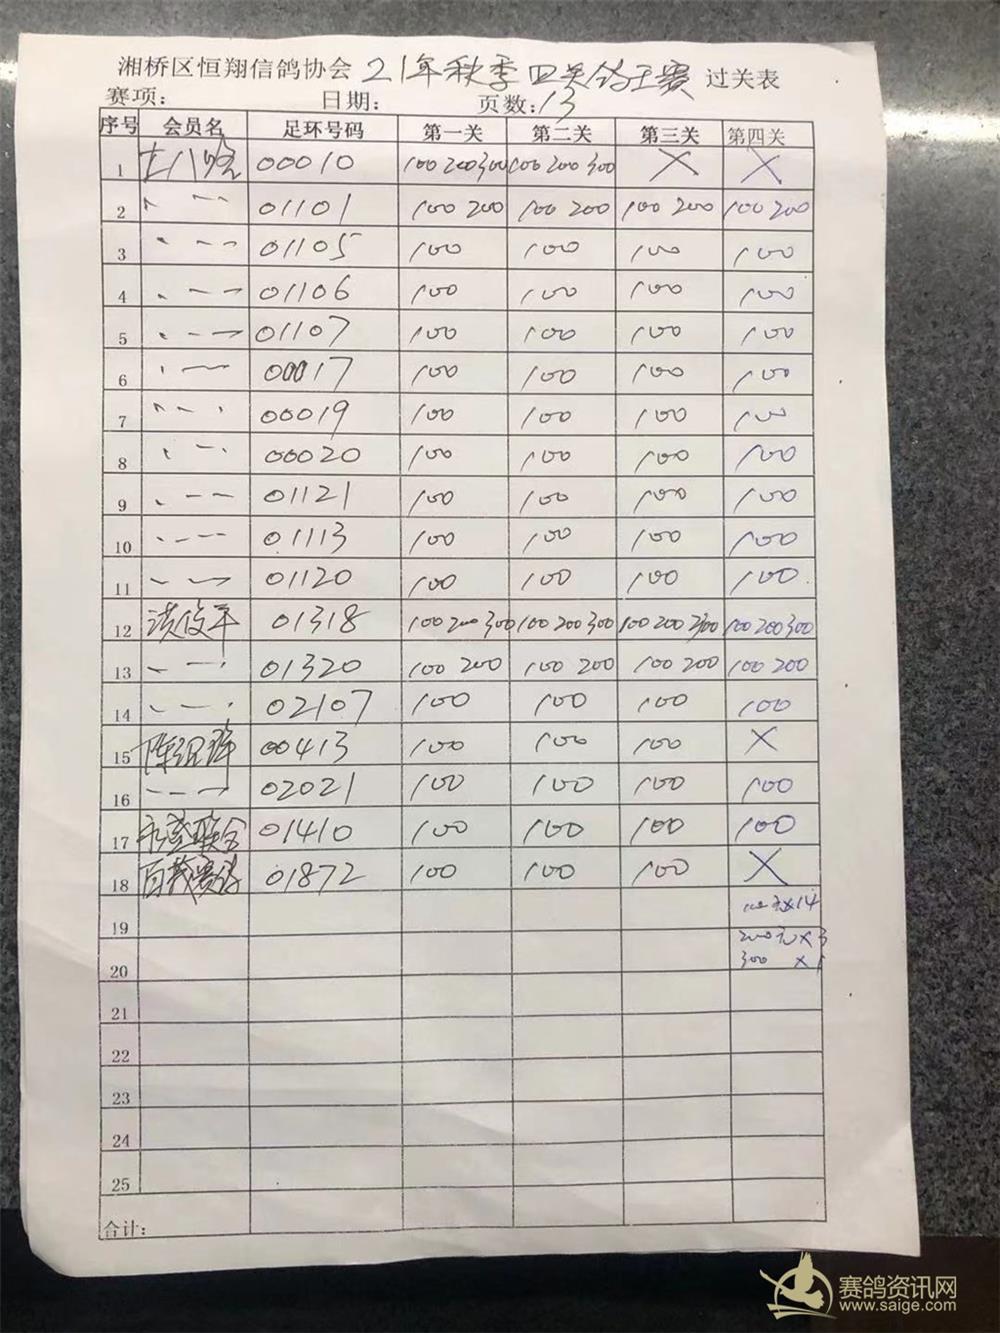 湘桥区恒翔信鸽协会 21年秋季四关鸽王赛 过关表
赛项: 日期: 页数:13
序号 会员名 足环号码 第一关 第二关 第三关 第四关
1 00010 100 200 300 100 200 300 X X
2 〃 01101 100 200 100 200 100 200 100 200
3 〃 01105 100 100 100 100
4 〃 01106 100 100 100 100
5 〃 01107 100 100 100 100
6 〃 00017 100 100 100 100
7 〃 00019 100 100 100 100
8 〃 00020 100 100 100 100
9 〃 01121 100 100 100 100
10 〃 01113 100 100 100 100
11 〃 01120 100 100 100 100
12 洪俊平 01318 100 200 300 100 200 300 100 200 300 100 200 300
13 〃 01320 100 200 100 200 100 200 100 200
14 〃 02107 100 100 100 100
15 00413 100 100 100 X
16 〃 02021 100 100 100 100
17 01410 100 100 100 100
18 01872 100 100 100 X
19 100元x14
200元x3
20 300 x1
21
22
23
24
25
合计:
赛鸽资讯网
www.saige.com